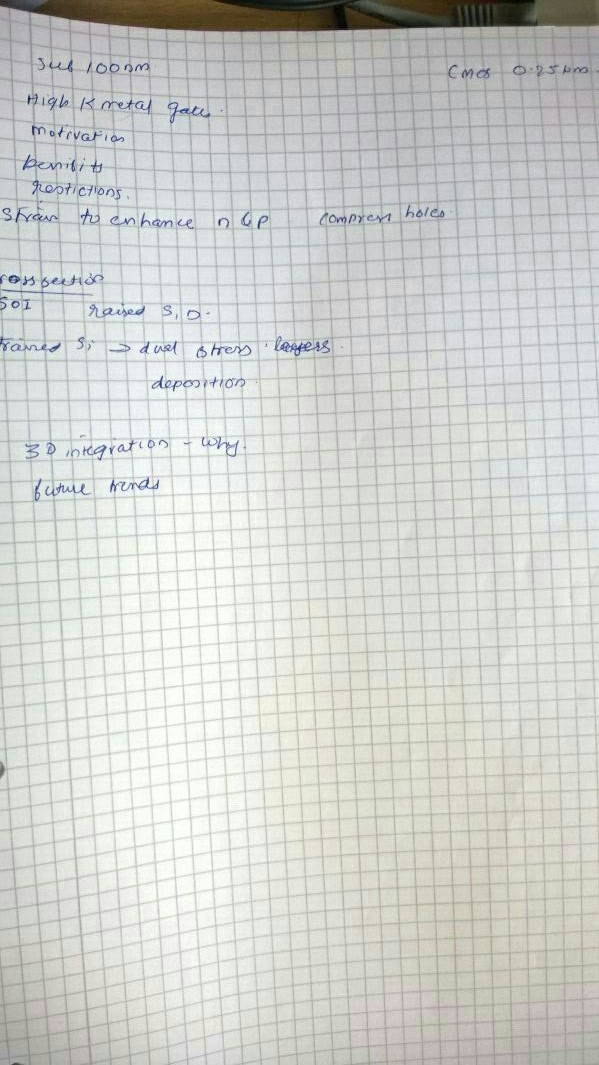 Sub 100nm CMOS 0.25µm
High K metal gate.
motivation
benifits
restictions.
Strain to enhance n & P compress holes.
ross section
SOI raised S, D.
trained Si → dual stress layers.
deposition.
3D integration - why.
future trends